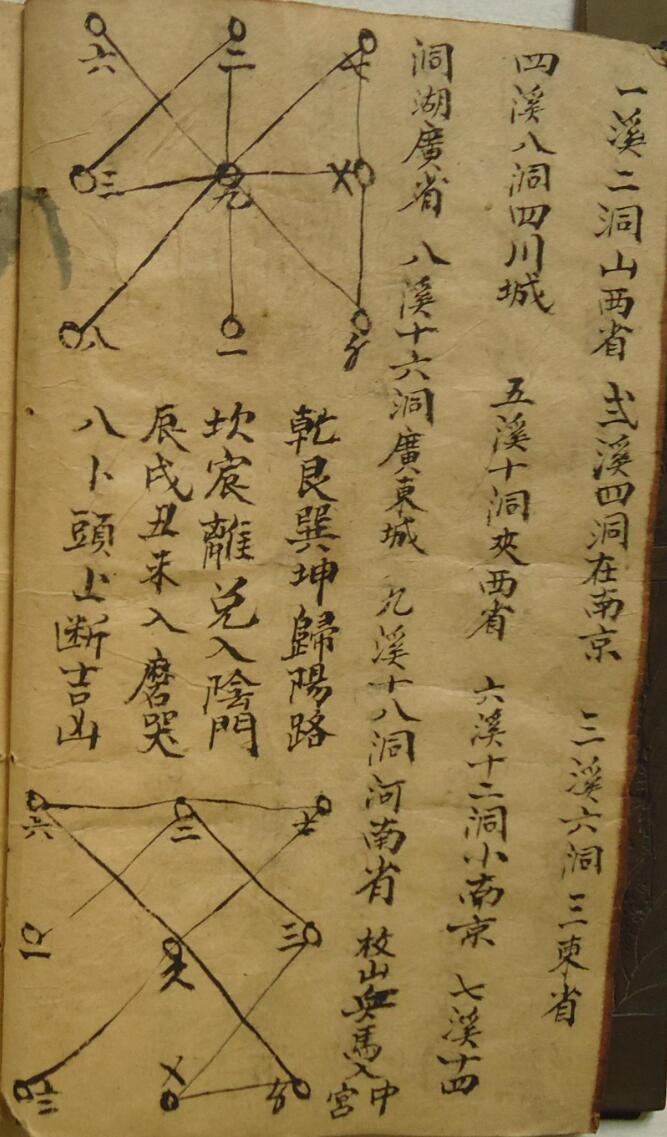 一溪二洞山西省 弍溪四洞在南京 三溪六洞三東省
四溪八洞四川城 五溪十洞夾西省 六溪十二洞小南京 七溪十四
洞湖廣省 八溪十六洞廣東城 九溪十八洞河南省 枚山兵馬入中宮
六 二 七
三 九 㐅
八 一
乾艮巽坤歸陽路
坎宸離兌入陰門
辰戌丑未入磨哭
八卜頭上断吉凶
六 二 七
一 三
㐅